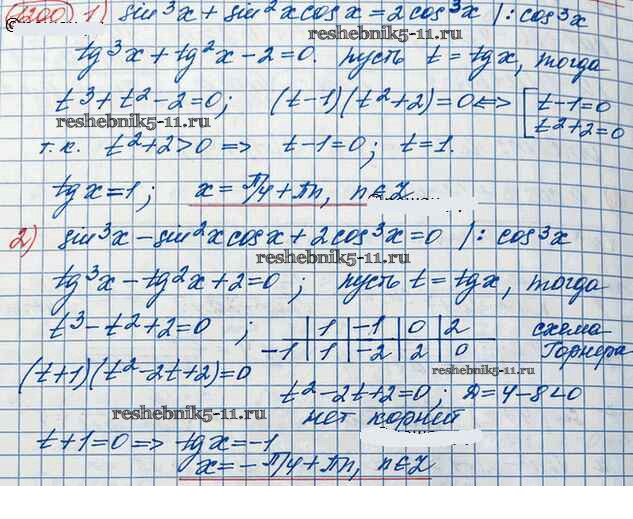 1200 1) sin³x + sin²x cosx = 2cos³x | : cos³x
reshebnik5-11.ru
tg³x + tg²x - 2 = 0. пусть t = tgx, тогда
t³ + t² - 2 = 0; (t-1)(t²+2) = 0 <=> [ t-1=0
t²+2=0
reshebnik5-11.ru
т.к. t²+2>0 => t-1=0; t=1.
tgx=1; x = π/4 + πn, n∈Z
2) sin³x - sin²x cosx + 2cos³x = 0 | : cos³x
reshebnik5-11.ru
tg³x - tg²x + 2 = 0; пусть t = tgx, тогда
t³ - t² + 2 = 0; | 1 | -1 | 0 | 2 схема
-1 | 1 | -2 | 2 | 0 Горнера
(t+1)(t²-2t+2)=0
reshebnik5-11.ru
t²-2t+2=0; D=4-8<0
reshebnik5-11.ru
нет корней
t+1=0 => tgx=-1
x = -π/4 + πn, n∈Z